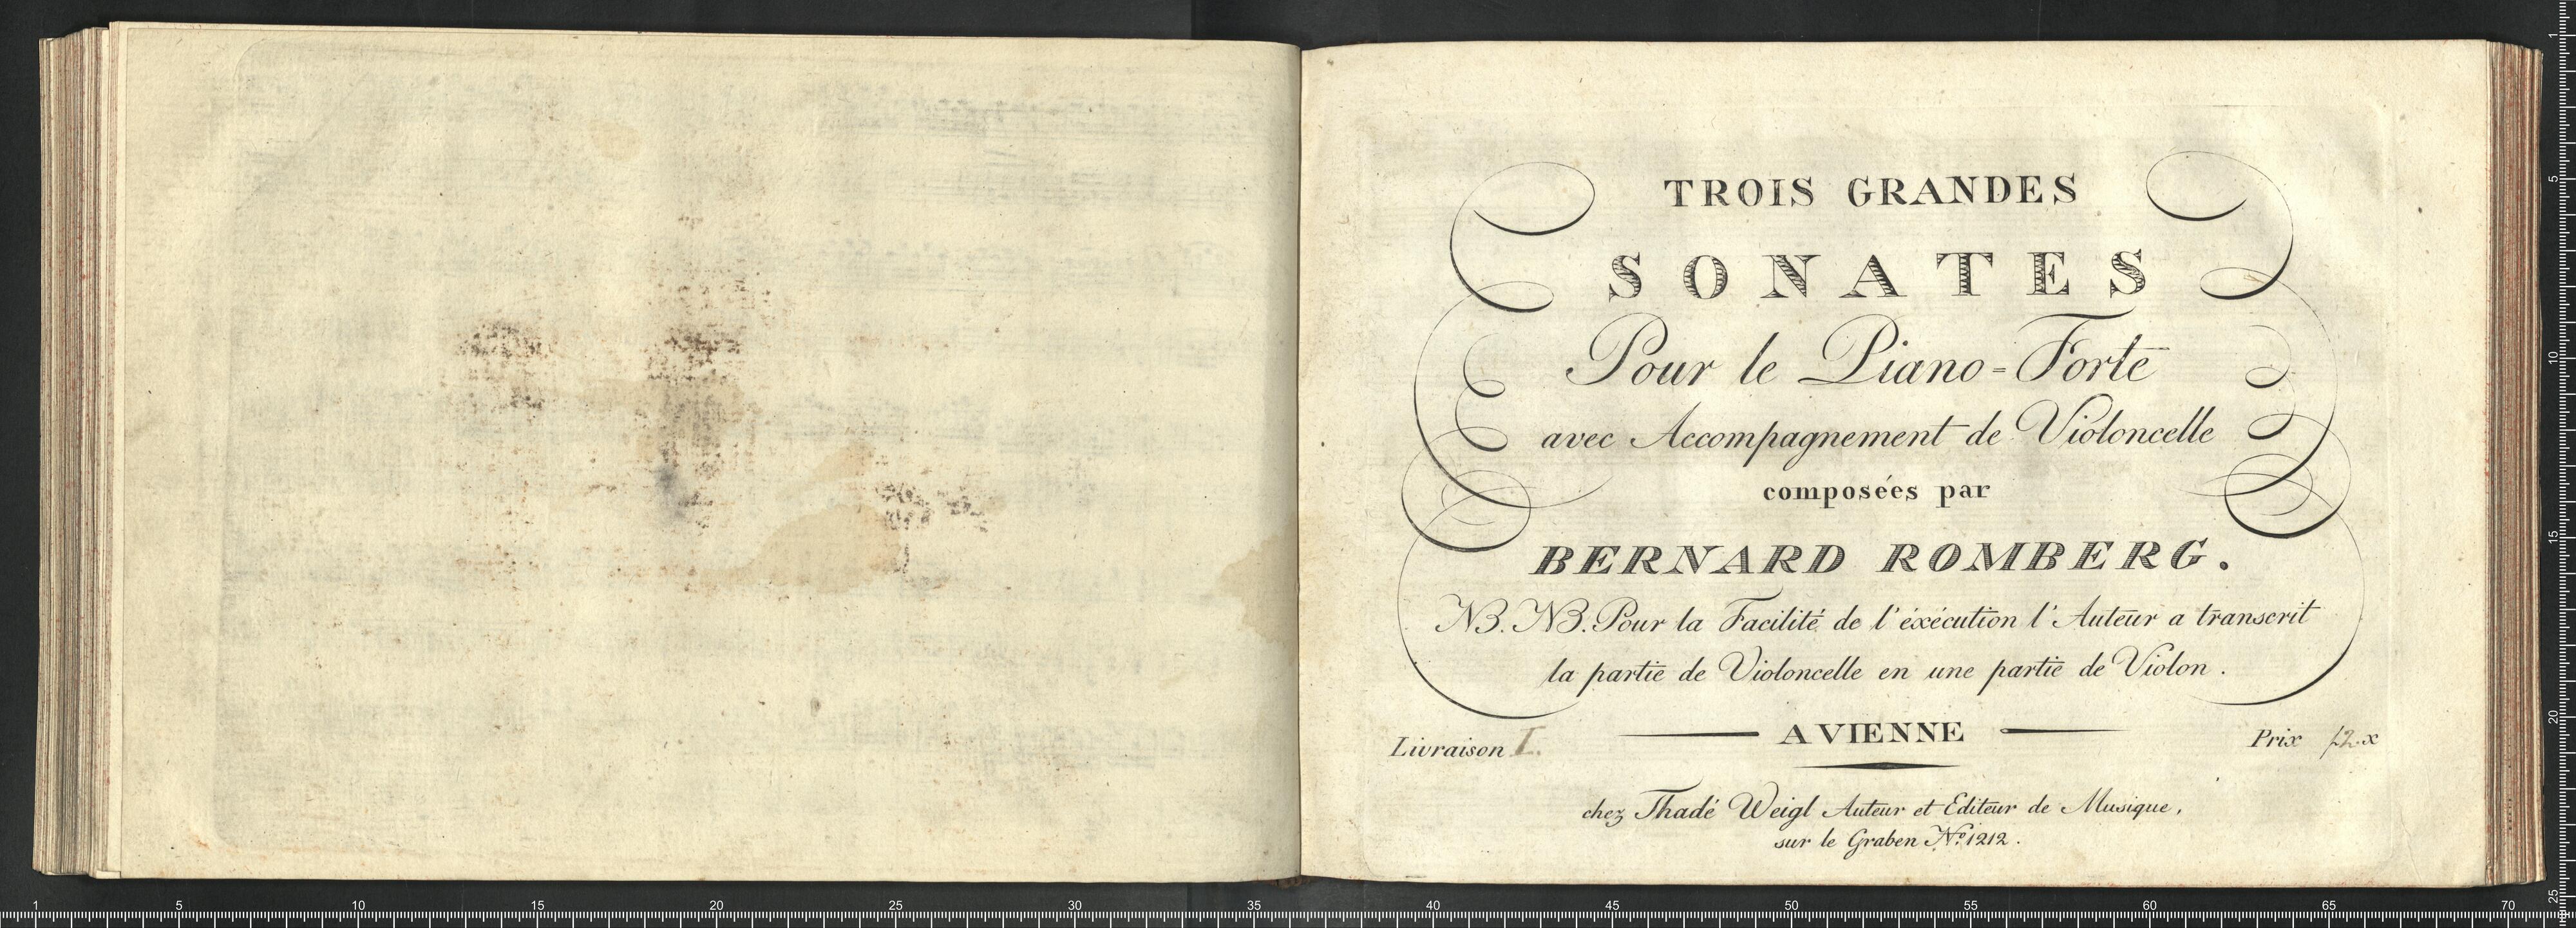 TROIS GRANDES
SONATES
Pour le Piano=Forte
avec Accompagnement de Violoncelle
composées par
BERNARD ROMBERG.
NB. NB. Pour la Facilité de l'éxécution l'Auteur a transcrit
la partie de Violoncelle en une partie de Violon.
A VIENNE
Livraison I. Prix f2.x
chez Thadé Weigl Auteur et Editeur de Musique,
sur le Graben No. 1212.
1 5 10 15 20 25 30 35 40 45 50 55 60 65 70
1 5 10 15 20 25